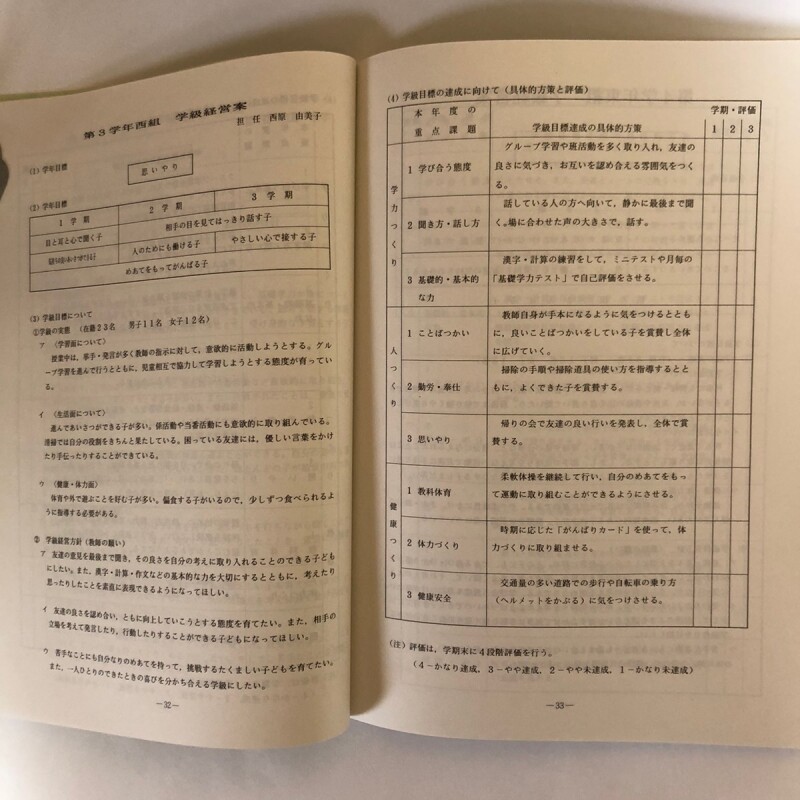 第3学年西組　学級経営案
担任　西原　由美子
(1) 学年目標
思いやり
(2) 学年目標
1　学　期　2　学　期　3　学　期
相手の目を見てはっきり話す子
目と耳と心で聞く子
人のためにも働ける子　やさしい心で接する子
めあてをもってがんばる子
(3) 学級目標について
①学級の実態　(在籍23名　男子11名　女子12名)
ア　〈学習面について〉
授業中は、挙手・発言が多く教師の指示に対して、意欲的に活動しようとする。グル
ープ学習を進んで行うとともに、児童相互で協力して学習しようとする態度が育ってい
る。
イ　〈生活面について〉
進んであいさつができる子が多い。係活動や当番活動にも意欲的に取り組んでいる。
清掃では自分の役割をきちんと果たしている。困っている友達には、優しい言葉をかけ
たり手伝ったりすることができている。
ウ　〈健康・体力面〉
体育や外で遊ぶことを好む子が多い。偏食する子がいるので、少しずつ食べられるよ
うに指導する必要がある。
②　学級経営方針（教師の願い）
ア　友達の意見を最後まで聞き、その良さを自分の考えに取り入れることのできる子ども
にしたい。また、漢字・計算・作文などの基本的な力を大切にするとともに、考えたり
思ったりしたことを素直に表現できるようになってほしい。
イ　友達の良さを認め合い、ともに向上していこうとする態度を育てたい。また、相手の
立場を考えて発言したり、行動したりすることができる子どもになってほしい。
ウ　苦手なことにも自分なりのめあてを持って、挑戦するたくましい子どもを育てたい。
また、一人ひとりのできたときの喜びを分かち合える学級にしたい。
―32―
(4) 学級目標の達成に向けて（具体的方策と評価）
本年度の重点課題　学級目標達成の具体的方策　学期・評価
1　2　3
学力つくり
1 学び合う態度
グループ学習や班活動を多く取り入れ、友達の
良さに気づき、お互いを認め合える雰囲気をつく
る。
2 聞き方・話し方
話している人の方へ向いて、静かに最後まで聞
く。場に合わせた声の大きさで、話す。
3 基礎的・基本的
な力
漢字・計算の練習をして、ミニテストや月毎の
「基礎学力テスト」で自己評価をさせる。
人つくり
1 ことばつかい
教師自身が手本になるように気をつけるととも
に、良いことばつかいをしている子を賞賛し全体
に広げていく。
2 勤労・奉仕
掃除の手順や掃除道具の使い方を指導するとと
もに、よくできた子を賞賛する。
3 思いやり
帰りの会で友達の良い行いを発表し、全体で賞
賛する。
健康つくり
1 教科体育
柔軟体操を継続して行い、自分のめあてをもっ
て運動に取り組むことができるようにさせる。
2 体力づくり
時期に応じた「がんばりカード」を使って、体
力づくりに取り組ませる。
3 健康安全
交通量の多い道路での歩行や自転車の乗り方
（ヘルメットをかぶる）に気をつけさせる。
(注) 評価は、学期末に4段階評価を行う。
（4－かなり達成、3－やや達成、2－やや未達成、1－かなり未達成）
―33―